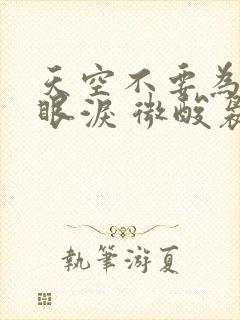 天空不要為
眼淚 微酸
執筆游夏